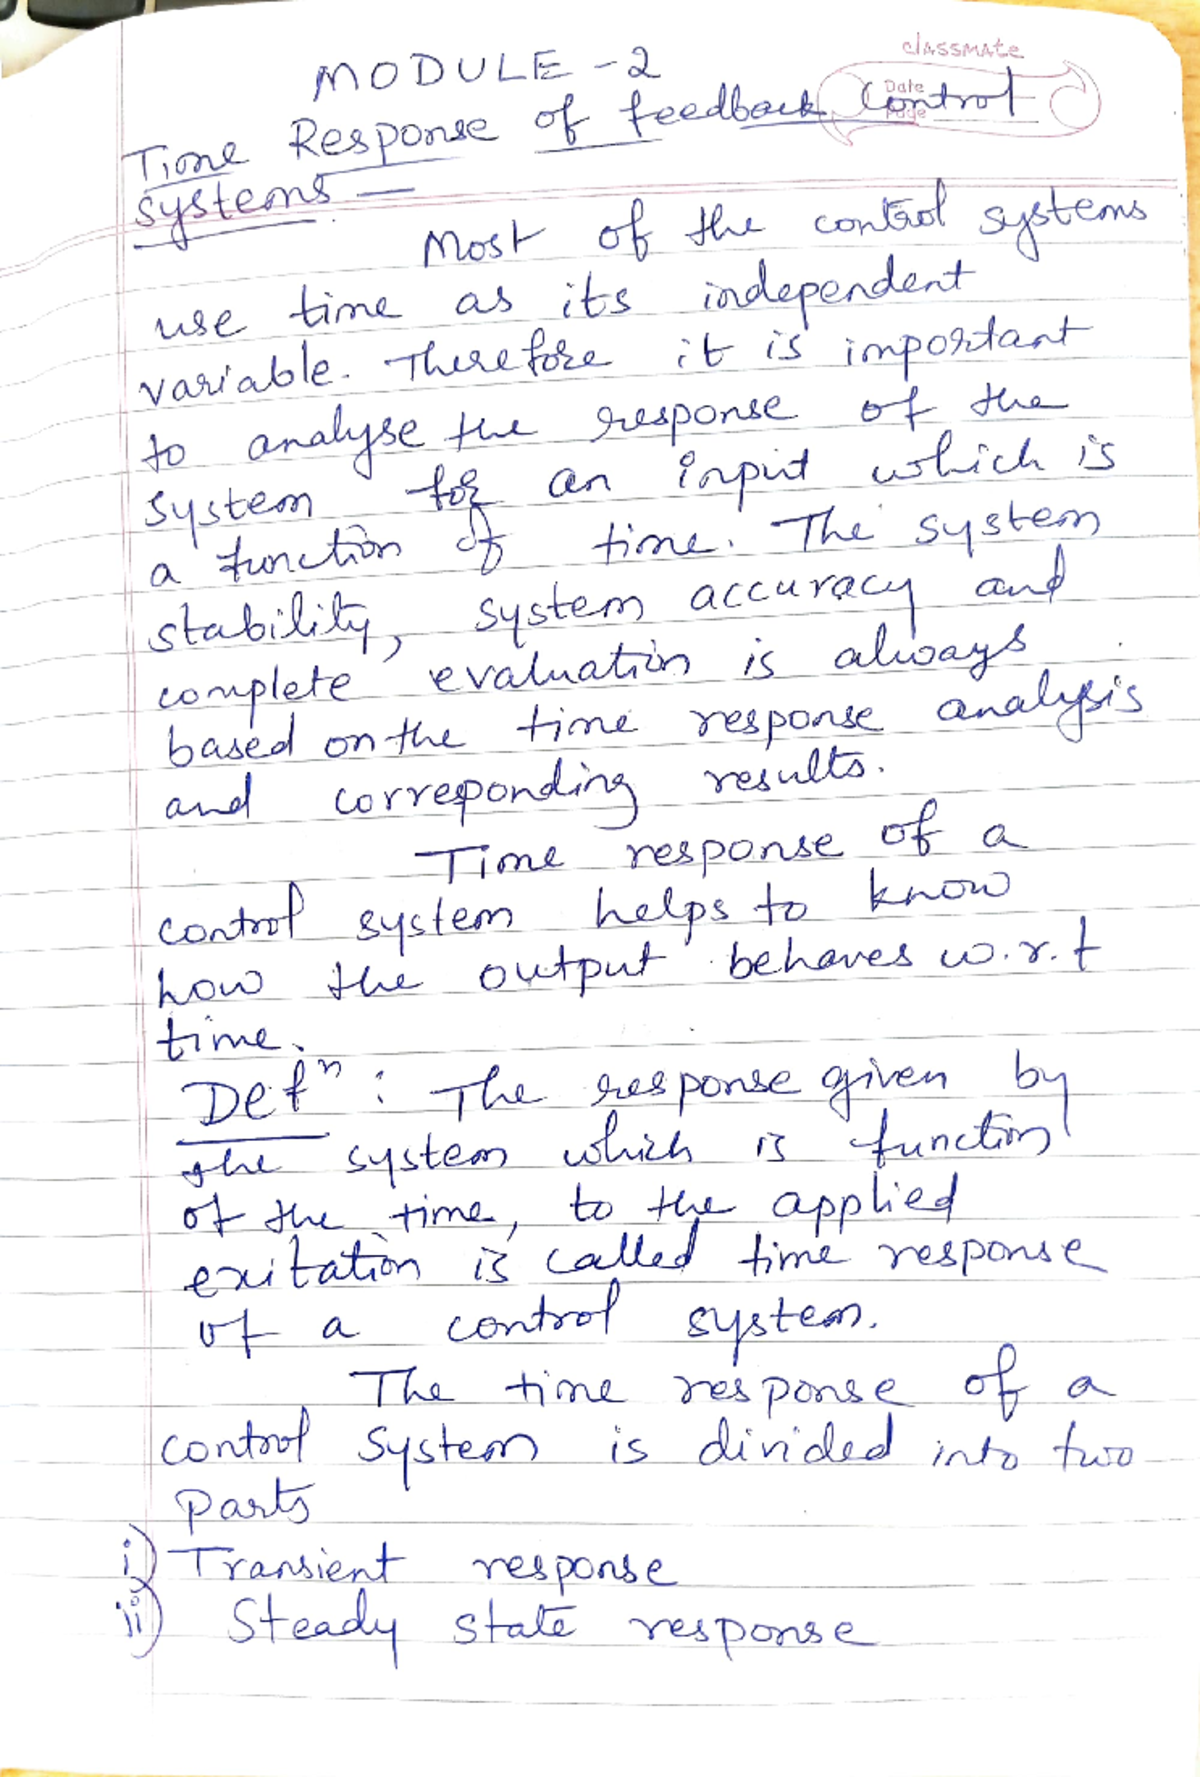 classmate
Date
Page
MODULE - 2
Time Response of feedback Control
systems —
Most of the control systems
use time as its independent
variable. Therefore it is important
to analyse the response of the
system for an input which is
a function of time. The system
stability, system accuracy and
complete evaluation is always
based on the time response analysis
and corresponding results.
Time response of a
control system helps to know
how the output behaves w.r.t
time.
Defⁿ : The response given by
the system which is function
of the time, to the applied
exitation is called time response
of a control system.
The time response of a
control system is divided into two
parts
i) Transient response
ii) Steady state response